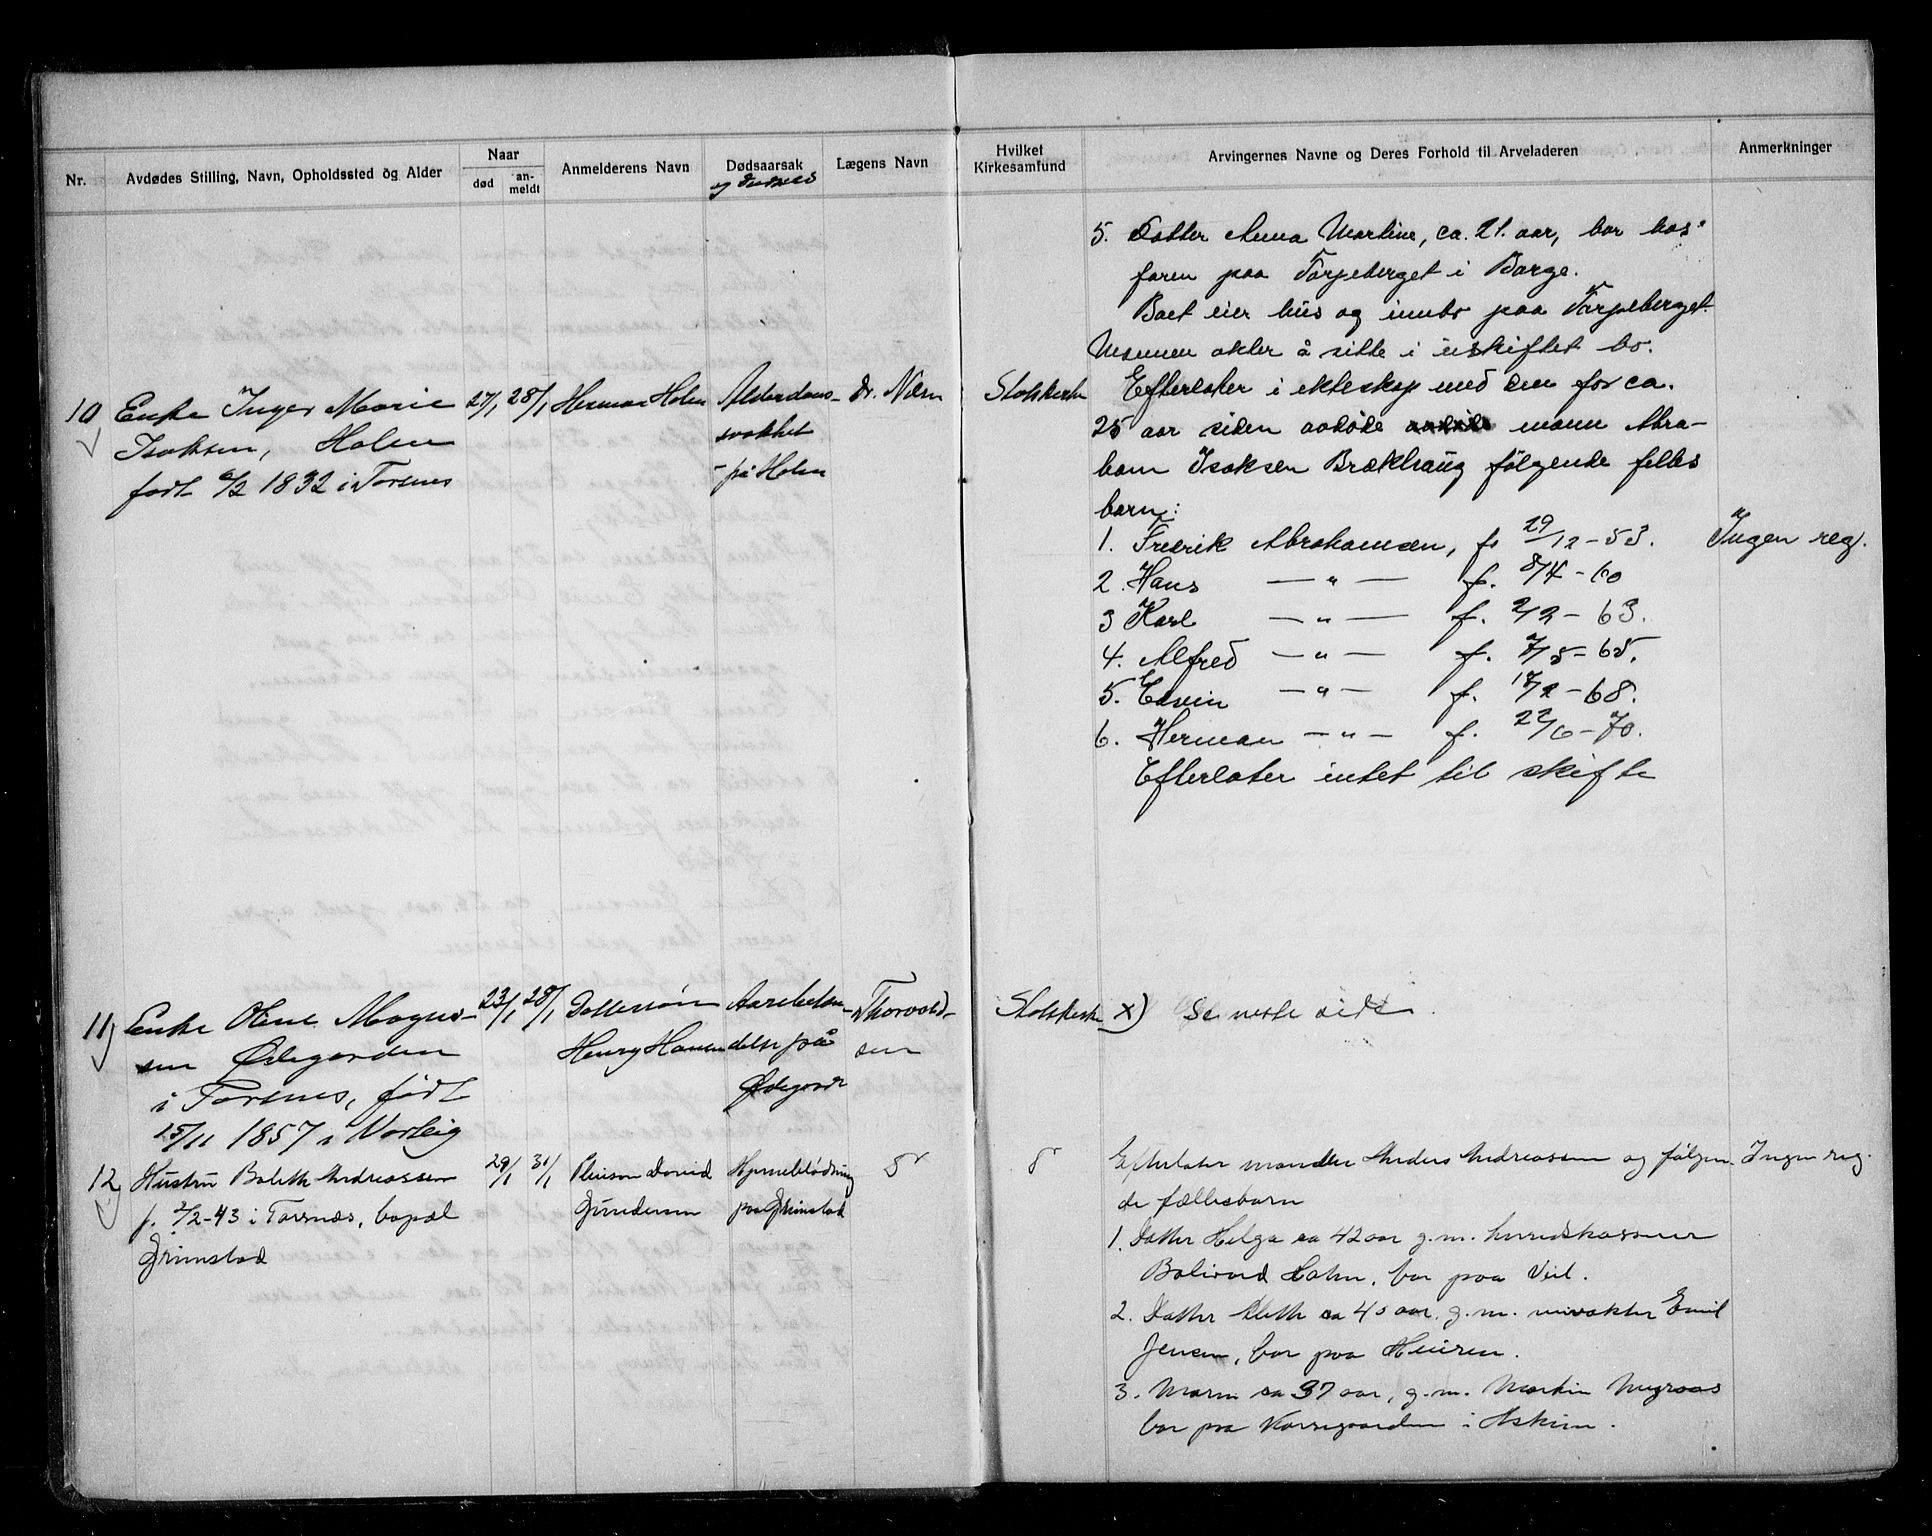 Nr.
Avdødes Stilling, Navn, Opholdssted og Alder
Naar
død
an-
meldt
Anmelderens Navn
Dødsaarsak
og dødssted
Lægens Navn
Hvilket
Kirkesamfund
Arvingernes Navne og Deres Forhold til Arveladeren
Anmerkninger
5. Datter Anna Martine, ca. 21. aar, bor hos
faren paa Torpeberget i Borge.
Boet eier hus og innbo paa Torpeberget.
Mannen akter å sitte i uskiftet bo.
10 Enke Inger Marie
Isaksen, Holm
født 6/2 1832 i Torsnes
27/1 28/1 Herman Holm
Alderdoms-
svakhet
- på Holm
dr. Nilsen
Statskirken
Efterlater i ekteskap med den for ca.
25 aar siden avdøde mann Abra-
ham Isaksen Brækhaug følgende felles
barn:
1. Fredrik Abrahamsen, f. 29/12-53. Ingen reg.
2. Hans — " — f. 8/4-60
3 Karl — " — f. 2/2-63.
4. Alfred — " — f. 7/5-65.
5. Edvin — " — f. 18/2-68.
6. Herman — " — f. 22/6-70.
Efterlater intet til skifte
11) Enke Oline Magnus-
sen Ødegården
i Torsnes, født
15/11 1857 i Varteig
23/1 28/1 Dattersøn
Henry Hansen
Aareforkalk-
på
Ødegård
Thorvald-
sen
Statskirken x) Se neste side.
12) Hustru Boleth Andreassen
f. 2/2-43 i Torsnæs, bopæl
Grimstad
29/1 31/1 David
Gundersen
Hjerneblødning
paa Grimstad
Efterlater manden Anders Andreassen og følgen- Ingen reg.
de fællesbarn
1. Datter Helga ca 42 aar g.m. herredskasserer
Bolivard Hahn, bor paa Viil.
2. Datter Alette ca 40 aar. g.m. Emil
Jensen, bor paa
3. Marn ca 37 aar, g.m. Martin
bor paa Korsegaarden i Askim.